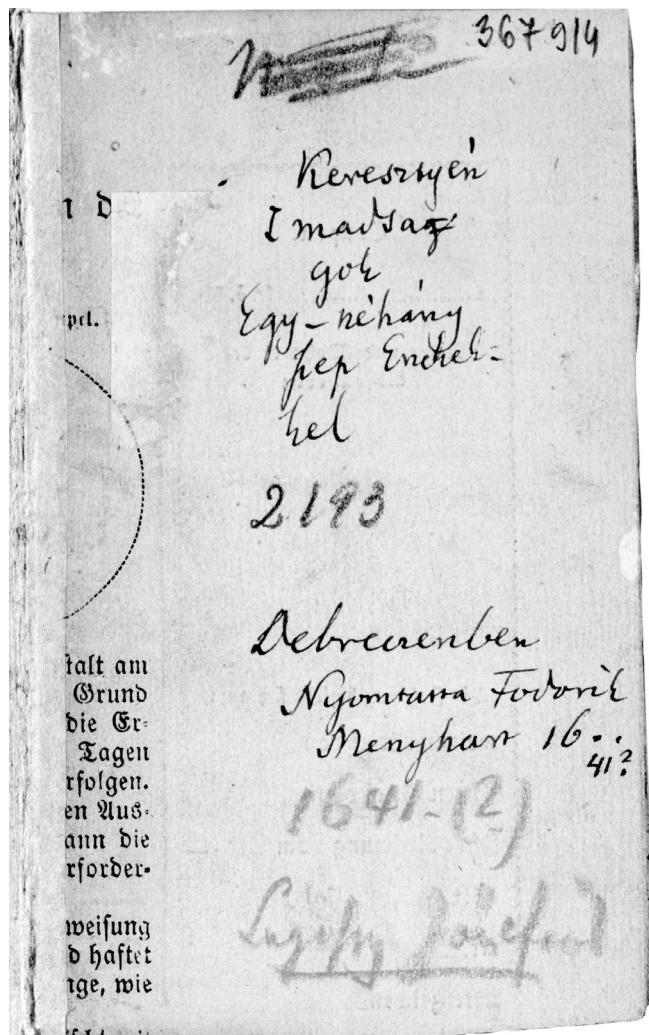 367914
Keresztyén
Imadsag
gok
Egy-néhány
szep Enekek-
kel
2193
Debreczenben
Nyomtatta Fodorik
Menyhart 16..
41?
1641-(2)
Józsefné
n d
pel.
talt am
Grund
die Er-
Tagen
rfolgen.
en Aus-
ann die
rforder-
weisung
d haftet
nge, wie